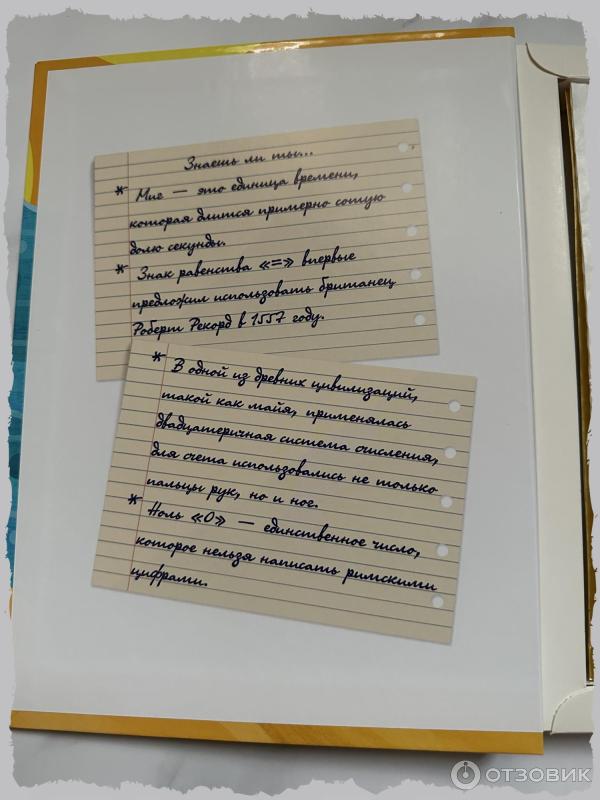 Знаешь ли ты...
* Миг — это единица времени,
которая длится примерно сотую
долю секунды.
* Знак равенства «=» впервые
предложил использовать британец
Роберт Рекорд в 1557 году.
* В одной из древних цивилизаций,
такой как майя, применялась
двадцатеричная система счисления,
для счета использовались не только
пальцы рук, но и ног.
* Ноль «0» — единственное число,
которое нельзя написать римскими
цифрами.
ОТЗОВИК